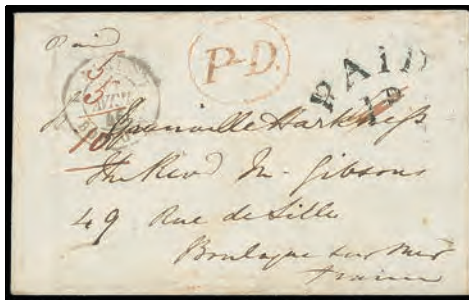 Paid
P-D.
PAID
1D
5
5
AVRIL
10
Granville Harkness
The Revd M. Gibsons
49 Rue de Lille
Boulogne sur Mer
France